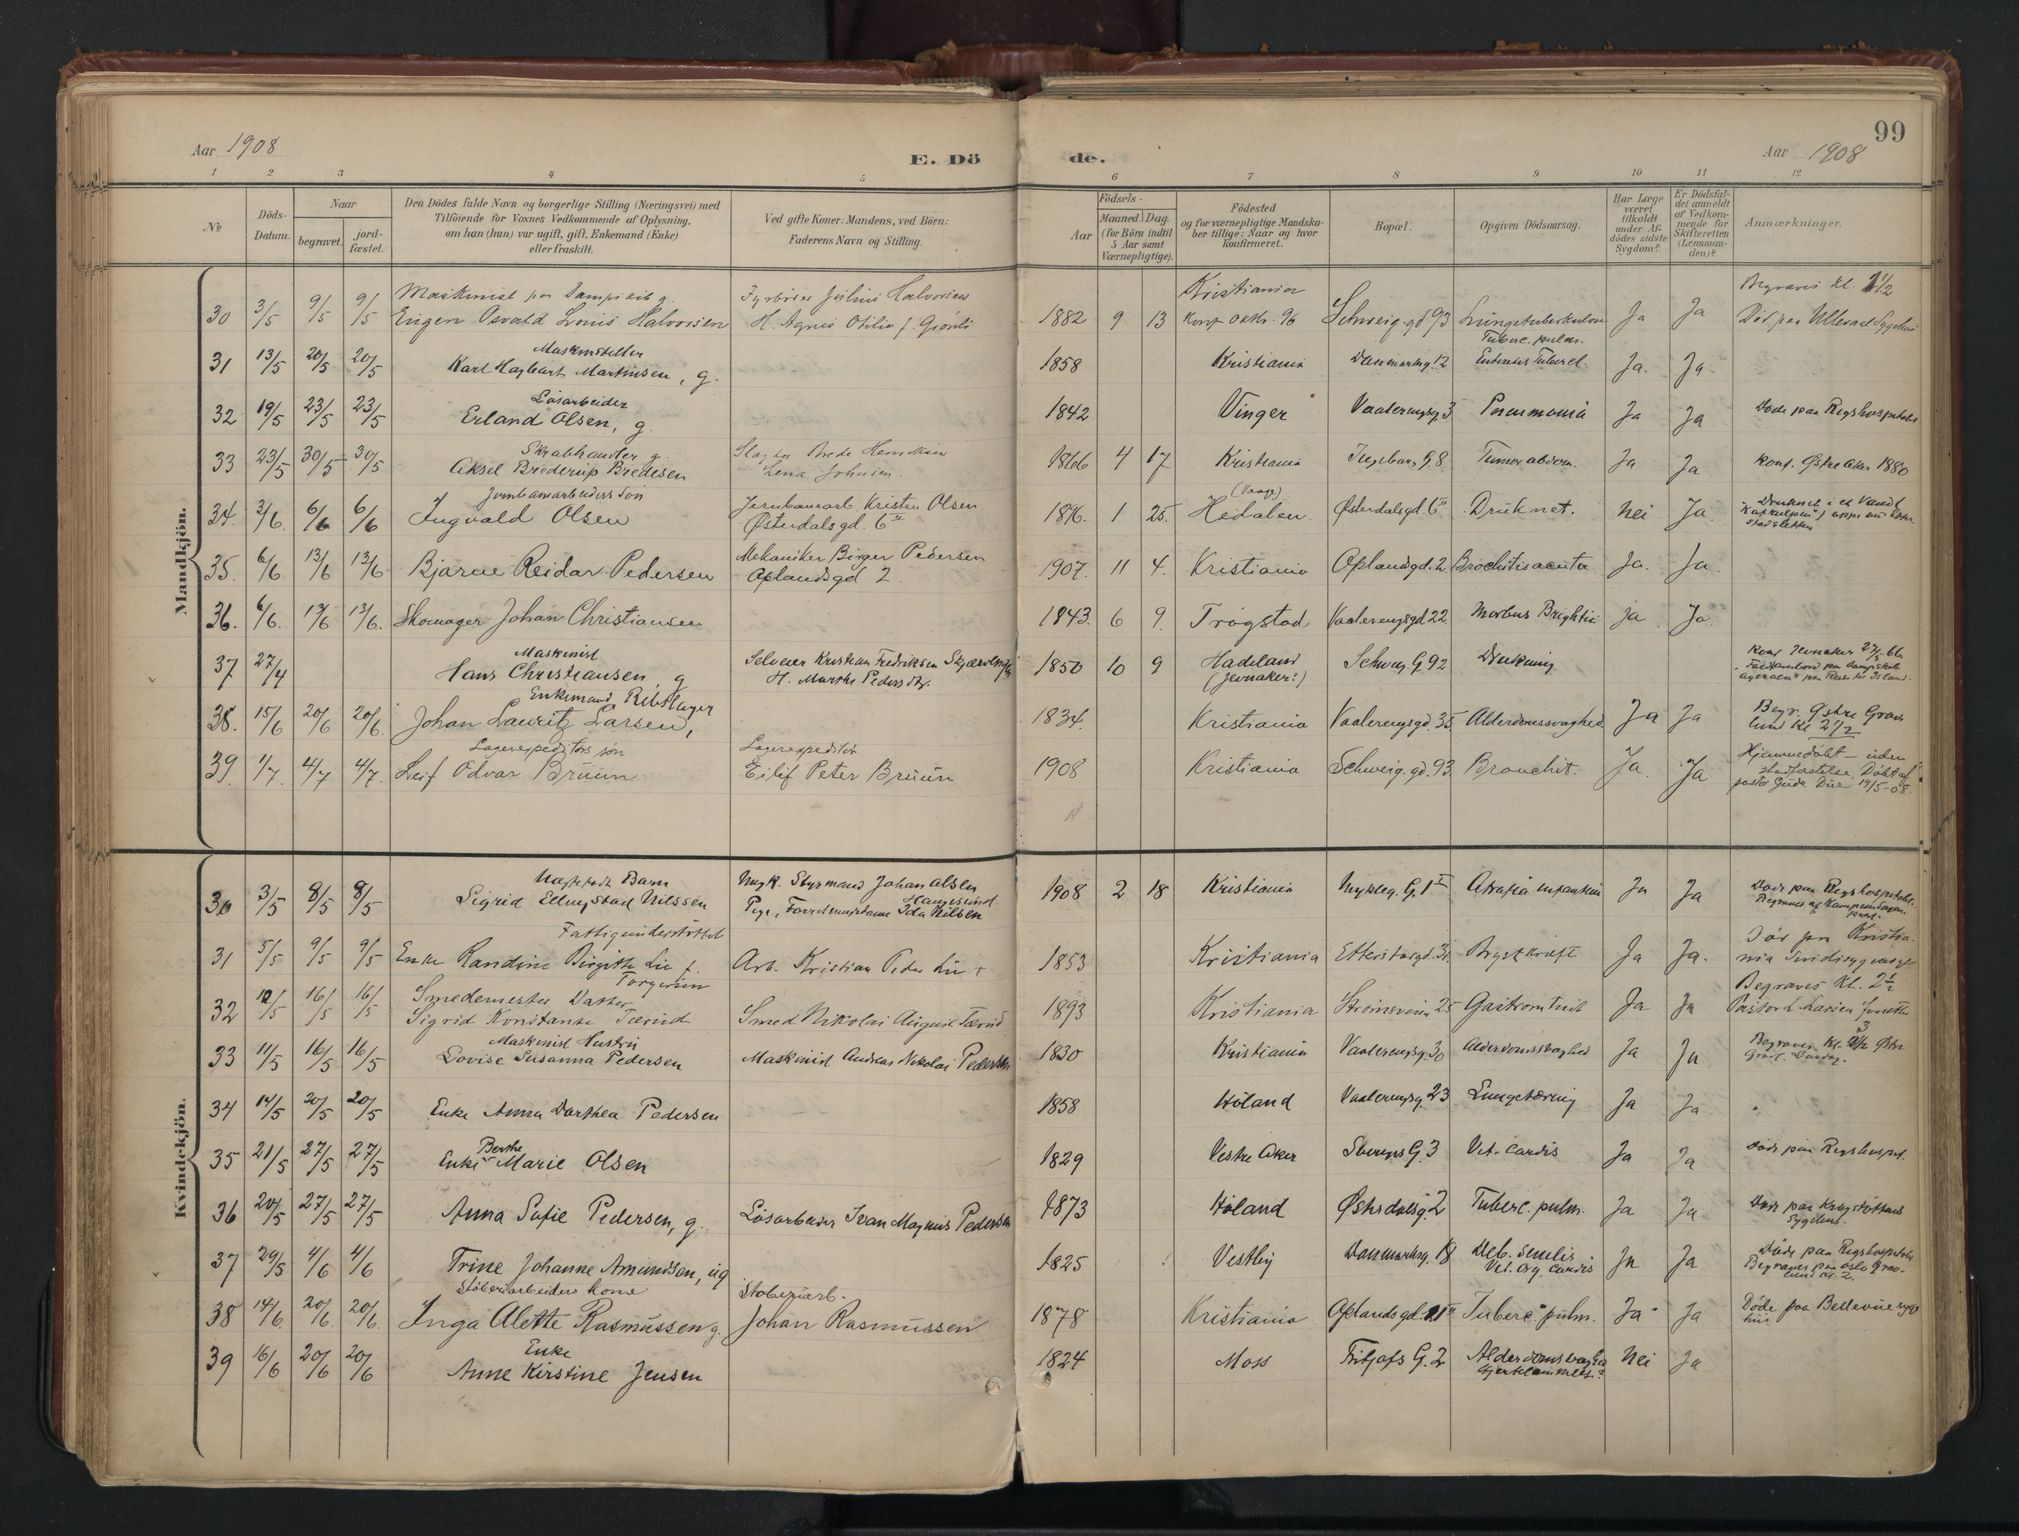 Aar 1908
E. Döde.
Aar 1908
99
1 2 3 4 5 6 7 8 9 10 11 12
№
Döds-Datum.
Naar
begravet.
jord-fæstet.
Den Dödes fulde Navn og borgerlige Stilling (Næringsvei) med
Tilföiende for Voxnes Vedkommende af Oplysning,
om han (hun) var ugift, gift, Enkemand (Enke)
eller fraskilt.
Ved gifte Koner: Mandens, ved Börn:
Faderens Navn og Stilling.
Födsels-
Aar
Maaned Dag.
(for Börn indtil
5 Aar samt
Værnepligtige).
Födested
og for værnepligtige Mandska-
ber tillige: Naar og hvor
konfirmeret.
Bopæl.
Opgiven Dödsaarsag.
Har Læge
været
tilkaldt
under Af-
dödes sidste
Sygdom?
Er Dödsfal-
det anmeldt
af Vedkom-
mende for
Skifteretten
(Lensman-
den)?
Anmærkninger.
Mandkjön.
30 3/5 9/5 9/5 Maskinist paa g.
Eugen Osvald Louis Halvorsen
Fyrbøder Julius Halvorsen
H. Agnes Otilie f.
1882 9 13 Kristiania
Konf. Oktbr. 96
Schweig.gd 93 Lungetuberkulose Ja Ja
Begraves Kl. 1 1/2
Død paa Ullevaal Sygehus
31 13/5 20/5 20/5 Karl Hagbart Martinsen, g.
1858 Kristiania Danmarksg. 12 Tuberc. pulm.
Tubercl. Ja. Ja
32 19/5 23/5 23/5 Løsarbeider
Erland Olsen, g.
1842 Vinger Vaalerengsg. 3 Pneumonia Ja Ja Døde paa Rigshospitalet
33 23/5 30/5 30/5 Skrabhandler g.
Aksel Brederup Bredesen
Brede Henriksen
Lena Johnsen
1866 4 17 Kristiania Ingebors G. 8 Tumor abdom. Ja Ja Konf. Østre Aker 1880
34. 3/6. 6/6 6/6 Jernbanearbeiders søn
Ingvald Olsen
Jernbanearb Kristen Olsen
Østerdalsgd. 6 II
1896. 1 25. (Vaage)
Hedalen Østerdalsgd. 6 II Druknet. Nei Ja.
Druknet i et Vand
35. 6/6 13/6 13/6 Bjarne Reidar Pedersen
Mekaniker Birger Pedersen
Oplandsgd 2
1907. 11 4. Kristiania Oplandsgd. 2 Brochitis acuta Ja. Ja.
36. 6/6. 13/6 13/6. Skomager Johan Christiansen
1843. 6 9. Trøgstad, Vaalerengsgd 22. Morbus Brightii ja. Ja.
37 27/4 Maskinist
Hans Christiansen, g
Selveier Kristian Fredriksen
H. Marthe Pedersdtr.
1850 10 9 Hadeland
(Jevnaker?) Schweig G. 92 Drukning
Konf Jevnaker 27/5 66
38. 15/6 20/6 20/6. Enkemand, Rebslager
Johan Lauritz Larsen,
1834. Kristiania Vaalerengsgd 35. Alderdomssvaghed Ja Ja
Begr. Østre Grav
lund Kl 2 1/2
39. 1/7. 4/7 4/7. Lagerexpeditørs søn
Leif Odvar Brüün
Lagerexpeditør
Eilif Peter Brüün
1908 Kristiania Schweig.gd. 93. Bronchit. Ja. Ja
Hjemmedøbt – uden
stadfæstelse. Døbt af
pastor Gude Due 19/5-08.
Kvindekjön.
30 3/5 8/5 8/5 Barn
Sigrid Ellingstad Nilssen
Ungk. Styrmand Johan Olsen
Haugesund.
Pige, Ida Nilsen
1908 2 18 Kristiania Nykleg. G. 1 I infantum Ja Ja
Døde paa Rigshospitalet.
31 5/5 9/5 9/5 Fattigunderstøttet
Enke Randine Birgitte Lie f.
Torgersen
Arb. Kristian Peder Lie +
1853 Kristiania Brystkræft Ja Ja.
Dør paa Kristia-
nia
32 12/5 16/5 16/5 Smedemester Datter
Sigrid Konstanse Tærud
Smed Nikolai August Tærud
1893 Kristiania Strømsveien 25 Ja Ja
Begraves Kl. 2 1/2
Pastor L. Larsen
33 11/5 16/5 16/5 Maskinist Hustru
Lovise Susanna Pedersen
Maskinist Andreas Nikolai Pedersen
1830 Kristiania Vaalerengsg. 30 Alderdomssvaghed Ja Ja
34 14/5 20/5 20/5 Enke Anna Dorthea Pedersen
1858 Høland Vaalerengsg. 23 Lungetæring Ja Ja
35 21/5 27/5 27/5 Berthe
Enke Marie Olsen
1829 Vestre Aker Sverres G. 3 Vit. cordis Ja Ja Døde paa Rigshospit.
36 20/5 27/5 27/5 Anna Sofie Pedersen, g. Løsarbeider Ivan Magnus Pedersen
1873 Høland Østerdalsg. 2 Tuberc. pulm. Ja Ja
37 29/5 4/6 4/6 Trine Johanne Amundsen, ug
1825 Vestby Danmarksg. 18 Deb. senilis
Vit. org. cordis Ja Ja
Døde paa Rigshospitalet
Begraves paa Oslo Grav-
lund kl. 2.
38 14/6 20/6 20/6. Støberiarbeiders kone
Inga Alette Rasmussen g.
Støberiarb.
Johan Rasmussen
1878 Kristiania Oplandsgd. Tuberc. pulm. Ja Ja
Døde paa Bellevue syge
hus.
39 16/6 20/6 20/6 Enke
Anne Kirstine Jensen
1824 Moss Fritjofs G. 2 Nei Ja